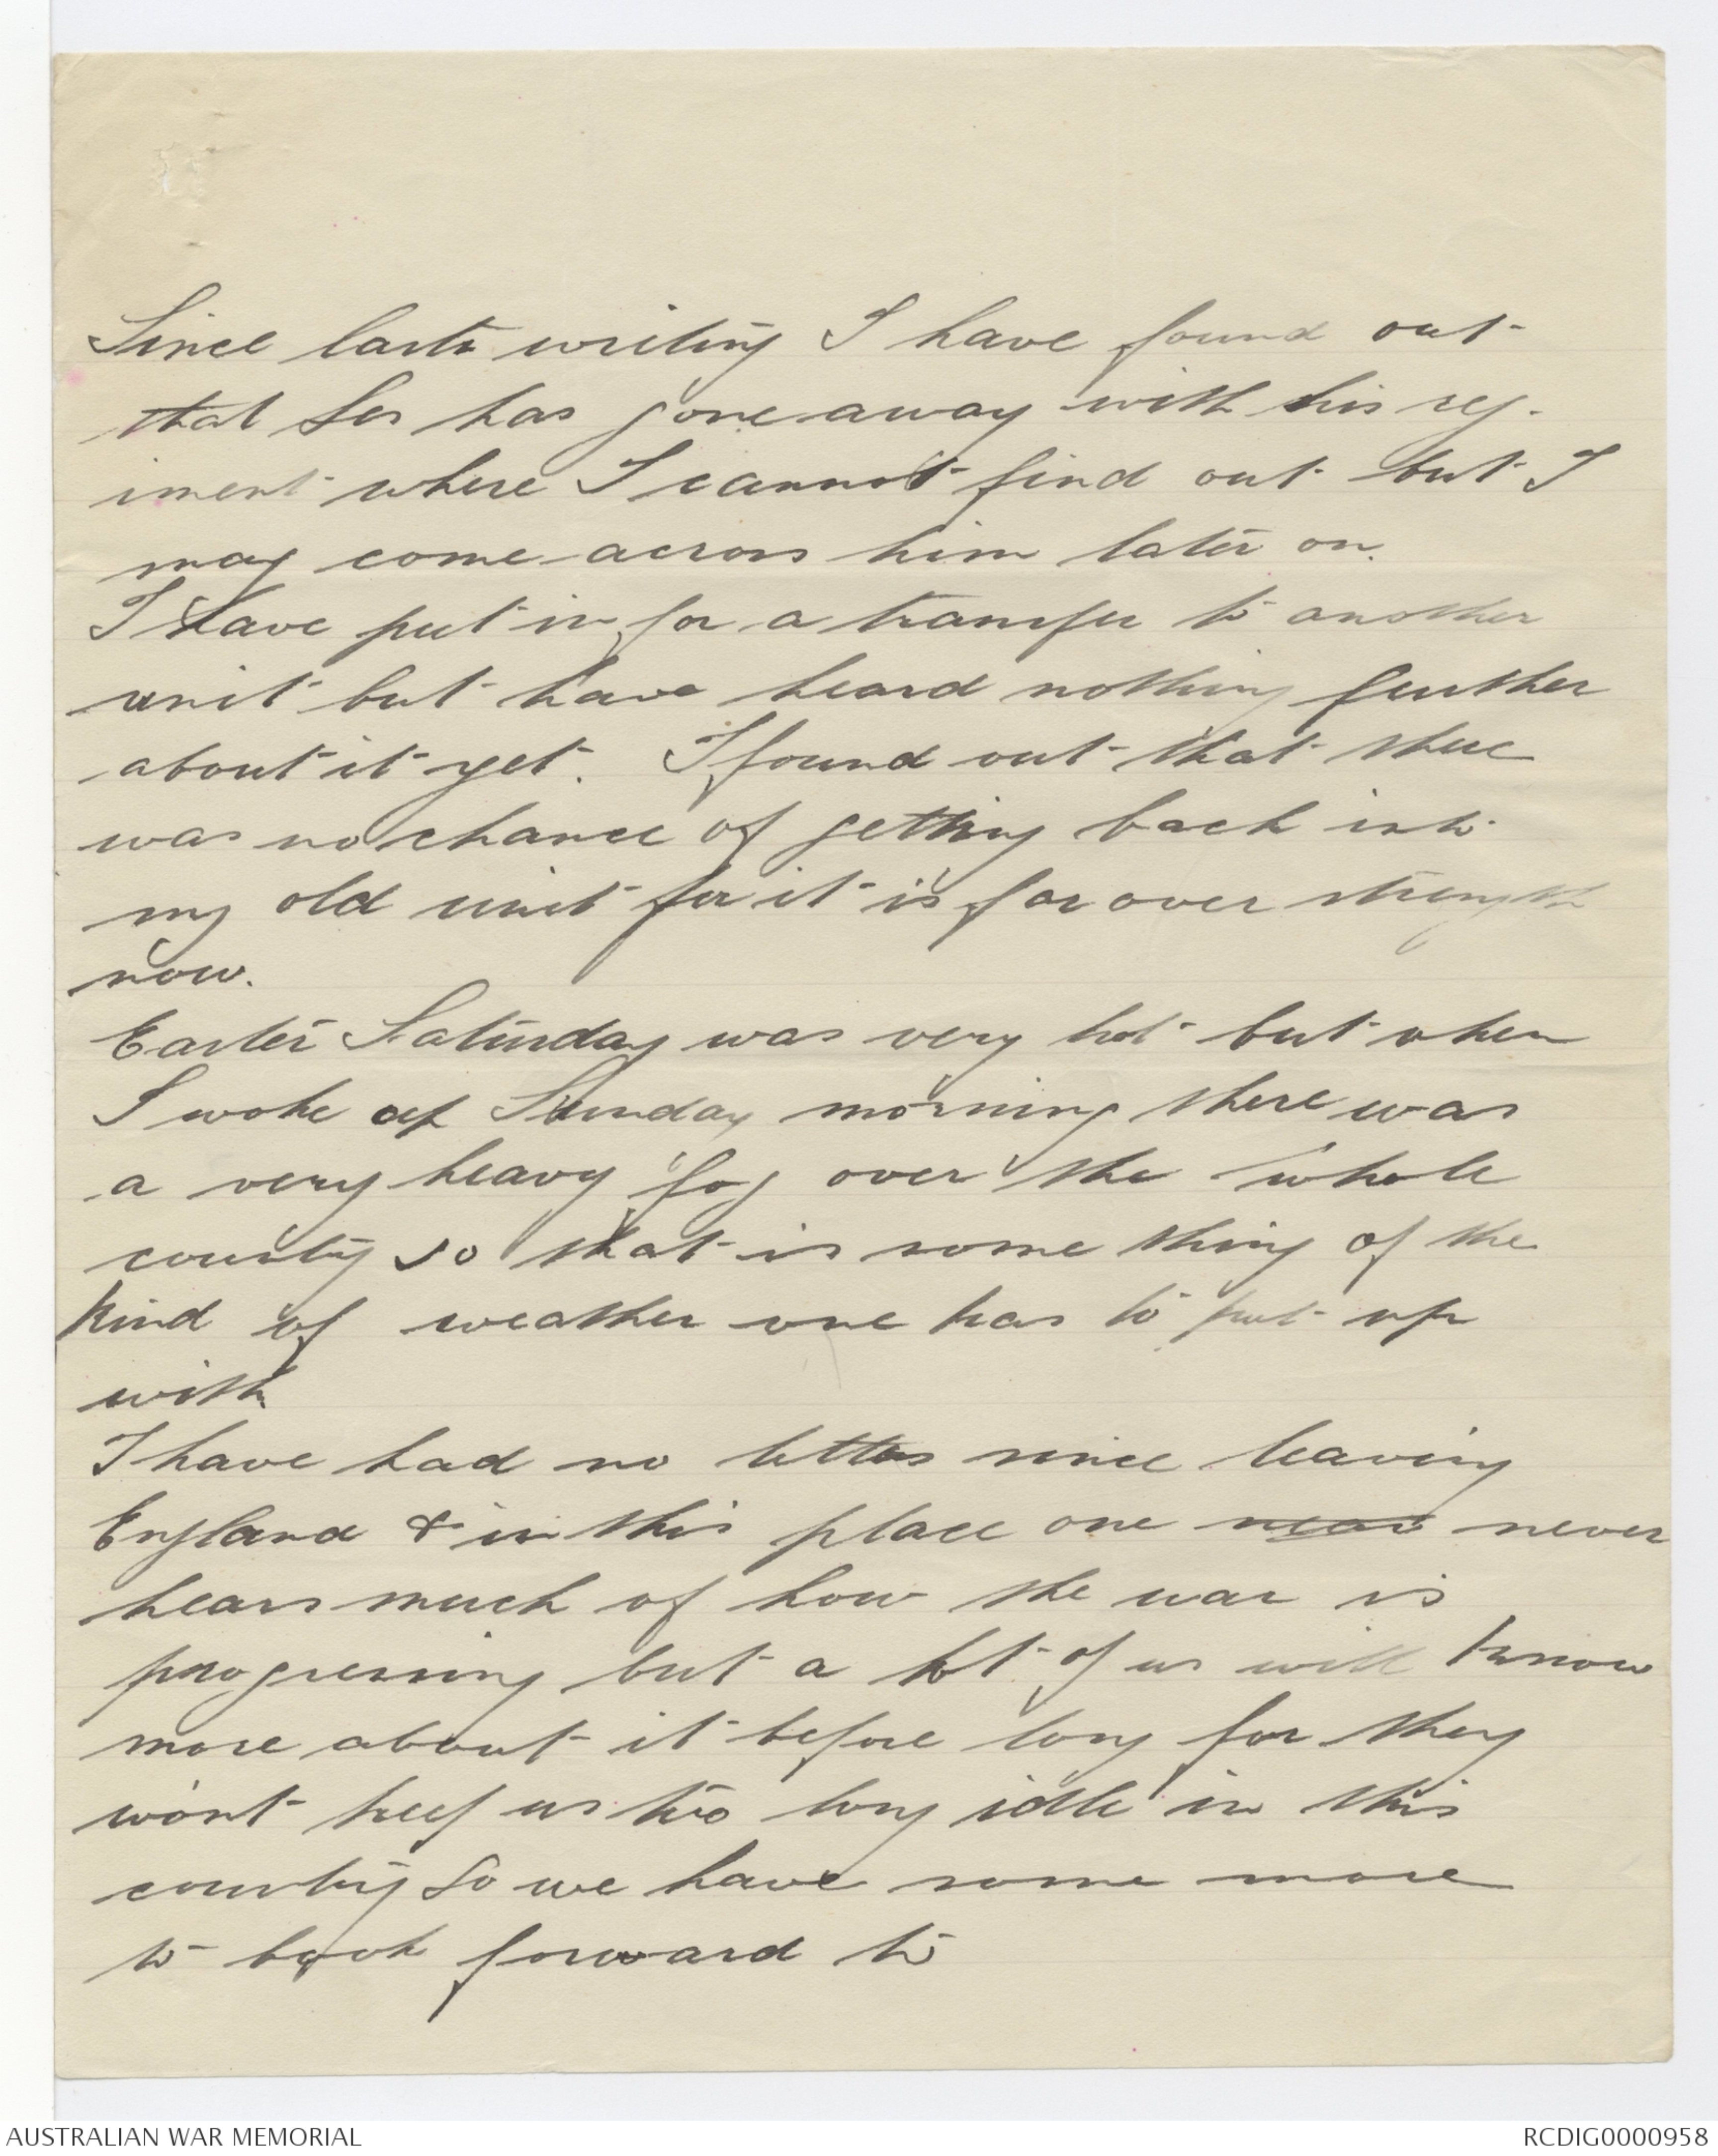 Since last writing I have found out
that Les has gone away with his reg-
iment where I cannot find out but I
may come across him later on.
I have put in for a transfer to another
unit but have heard nothing further
about it yet. I found out that there
was no chance of getting back into
my old unit for it is far over strength
now.
Easter Saturday was very hot but when
I woke up Sunday morning there was
a very heavy fog over the whole
country so that is some thing of the
kind of weather one has to put up
with
I have had no letters since leaving
England & in this place one never
hears much of how the war is
progressing but a lot of us will know
more about it before long for they
wont keep us too long idle in this
country so we have some more
to look forward to
AUSTRALIAN WAR MEMORIAL
RCDIG0000958